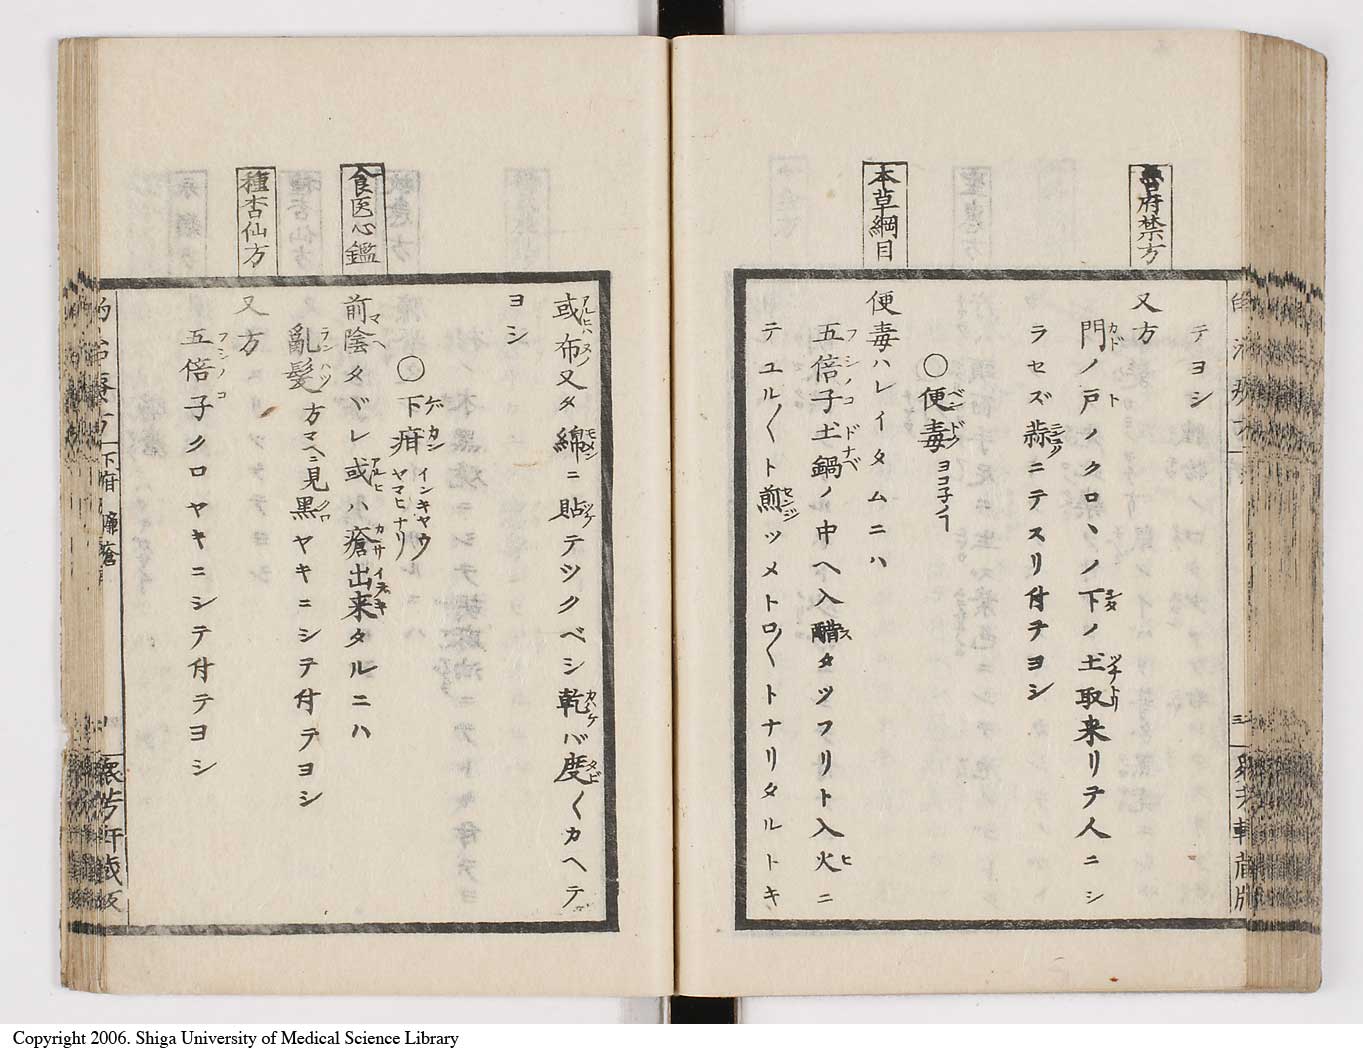 魯府禁方
テヨシ
又方
門ノ戸ノクロヽノ下ノ土取来リテ人ニシ
ラセズ蒜ニテスリ付テヨシ
○便毒ヨコ子ノコ
本草綱目
便毒ハレイタムニハ
五倍子土鍋ノ中ヘ入醋タツフリト入火ニ
テユル〳〵ト煎ツメトロ〳〵トナリタルトキ
或布又タ綿ニ貼テツクベシ乾バ度〱カヘテ
ヨシ
○下疳インキヤウヤマヒナリ
食医心鑑
前陰タヾレ或ハ瘡出来タルニハ
亂髮方マヘニ見黒ヤキニシテ付テヨシ
種杏仙方
又方
五倍子クロヤキニシテ付テヨシ
Copyright 2006. Shiga University of Medical Science Library